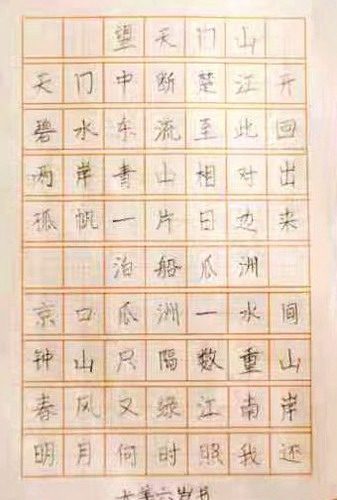 望天门山
天门中断楚江开
碧水东流至此回
两岸青山相对出
孤帆一片日边来
泊船瓜洲
京口瓜洲一水间
钟山只隔数重山
春风又绿江南岸
明月何时照我还
六岁书